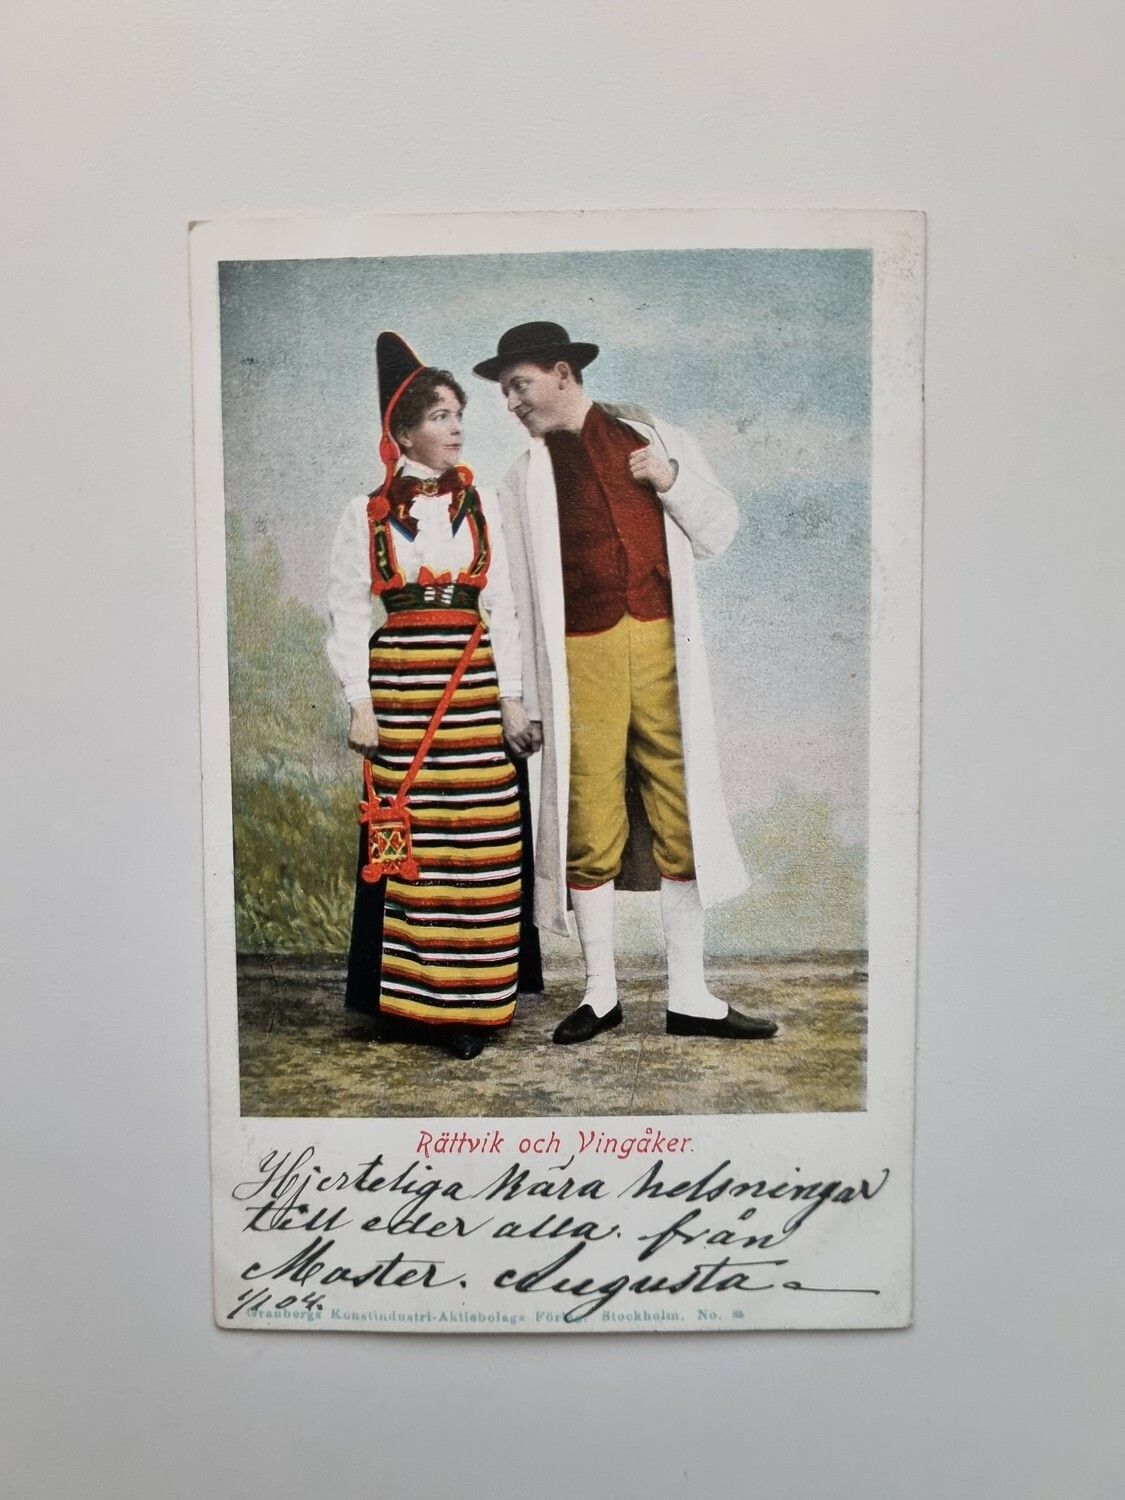 Rättvik och Vingåker.
Hjerteliga kära helsningar
till eder alla. från
Moster. Augusta
1/1 04.
Granbergs Konstindustri-Aktiebolags Förlag, Stockholm. No. 85